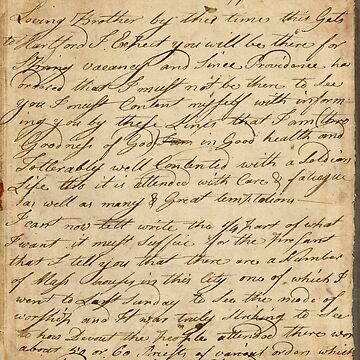 Loving Brother by this time this Gets
to Hartford I Exhect you will be there for
vacancy and Since Providence has
ordered that I must not be there to See
you I must Content myself with inform
ing you by these Lines that I am
Goodness of God in Good health and
Tollerably well Contented with a Soldiers
Life tho it is attended with Care & fatiegue
as well as many & Great temptations
I cant now tell write the 1/4 part of what
I want it must Suffice for the present
that I tell you that there are a Number
of Mass houses in this City one of which I
went to Last Sunday to See the mode of
worship and it was truly Striking to See
how Devout the people attended there were
about 50 or 60 Priests of order which